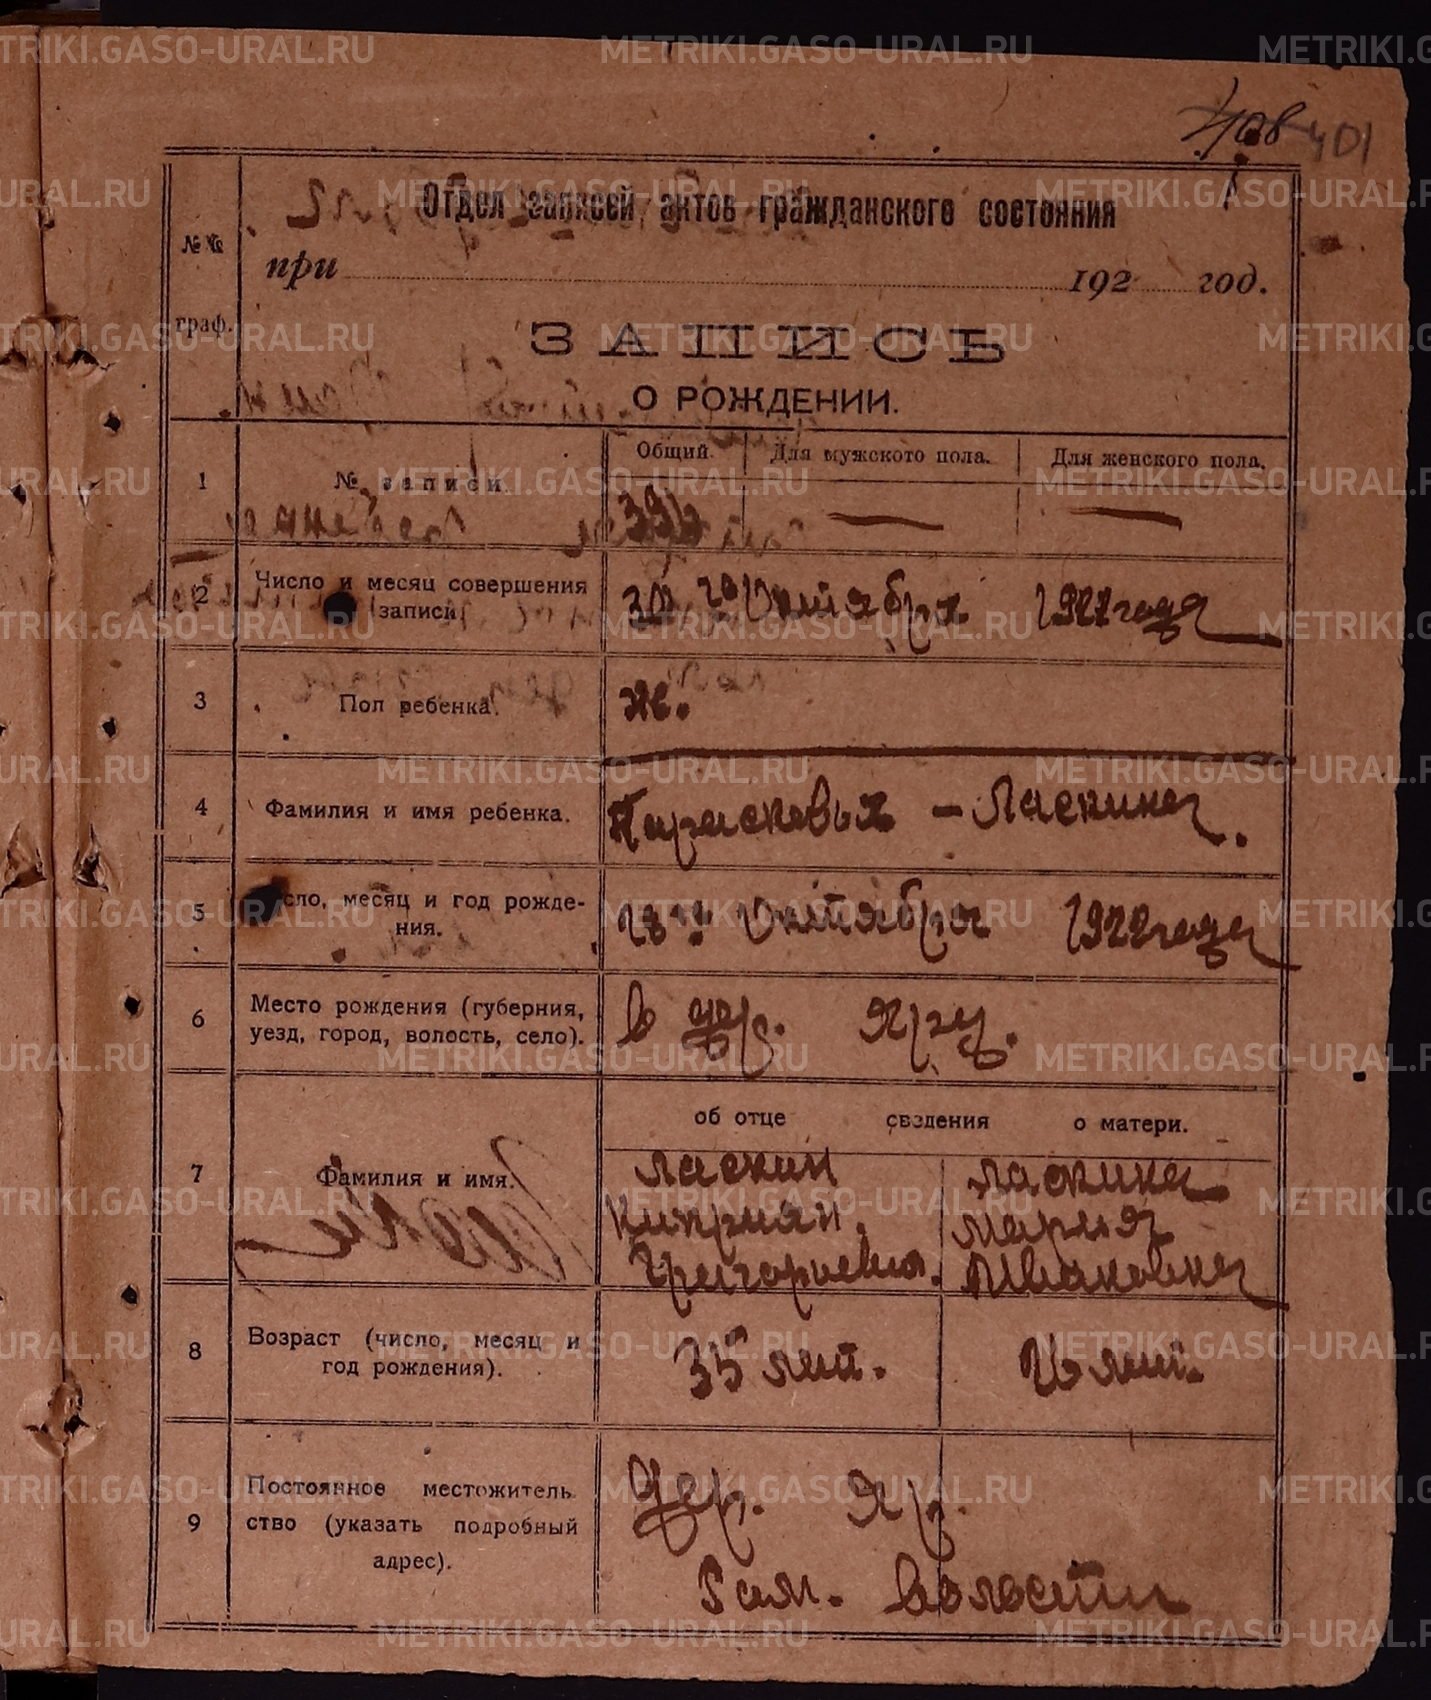 408 401
№№ граф.
Отдел записей актов гражданского состояния
при 192 год.
ЗАПИСЬ
О РОЖДЕНИИ.
1 № записи. Общий. Для мужского пола. Для женского пола.
— —
2 Число и месяц совершения записи 30 го Октября 1922 года
3 Пол ребенка. ж.
4 Фамилия и имя ребенка. Парасковья – Ласкина.
5 сло, месяц и год рожде-
ния. 18 Октября 1922 года
6 Место рождения (губерния,
уезд, город, волость, село). в дер.
7 Фамилия и имя. об отце сведения о матери.
Ласкин Ласкина
Киприан. Мария
Григорьевич. Ивановна
8 Возраст (число, месяц и
год рождения). 35 лет. лет.
9 Постоянное местожитель
ство (указать подробный
адрес). дер. Яр.
волости
METRIKI.GASO-URAL.RU